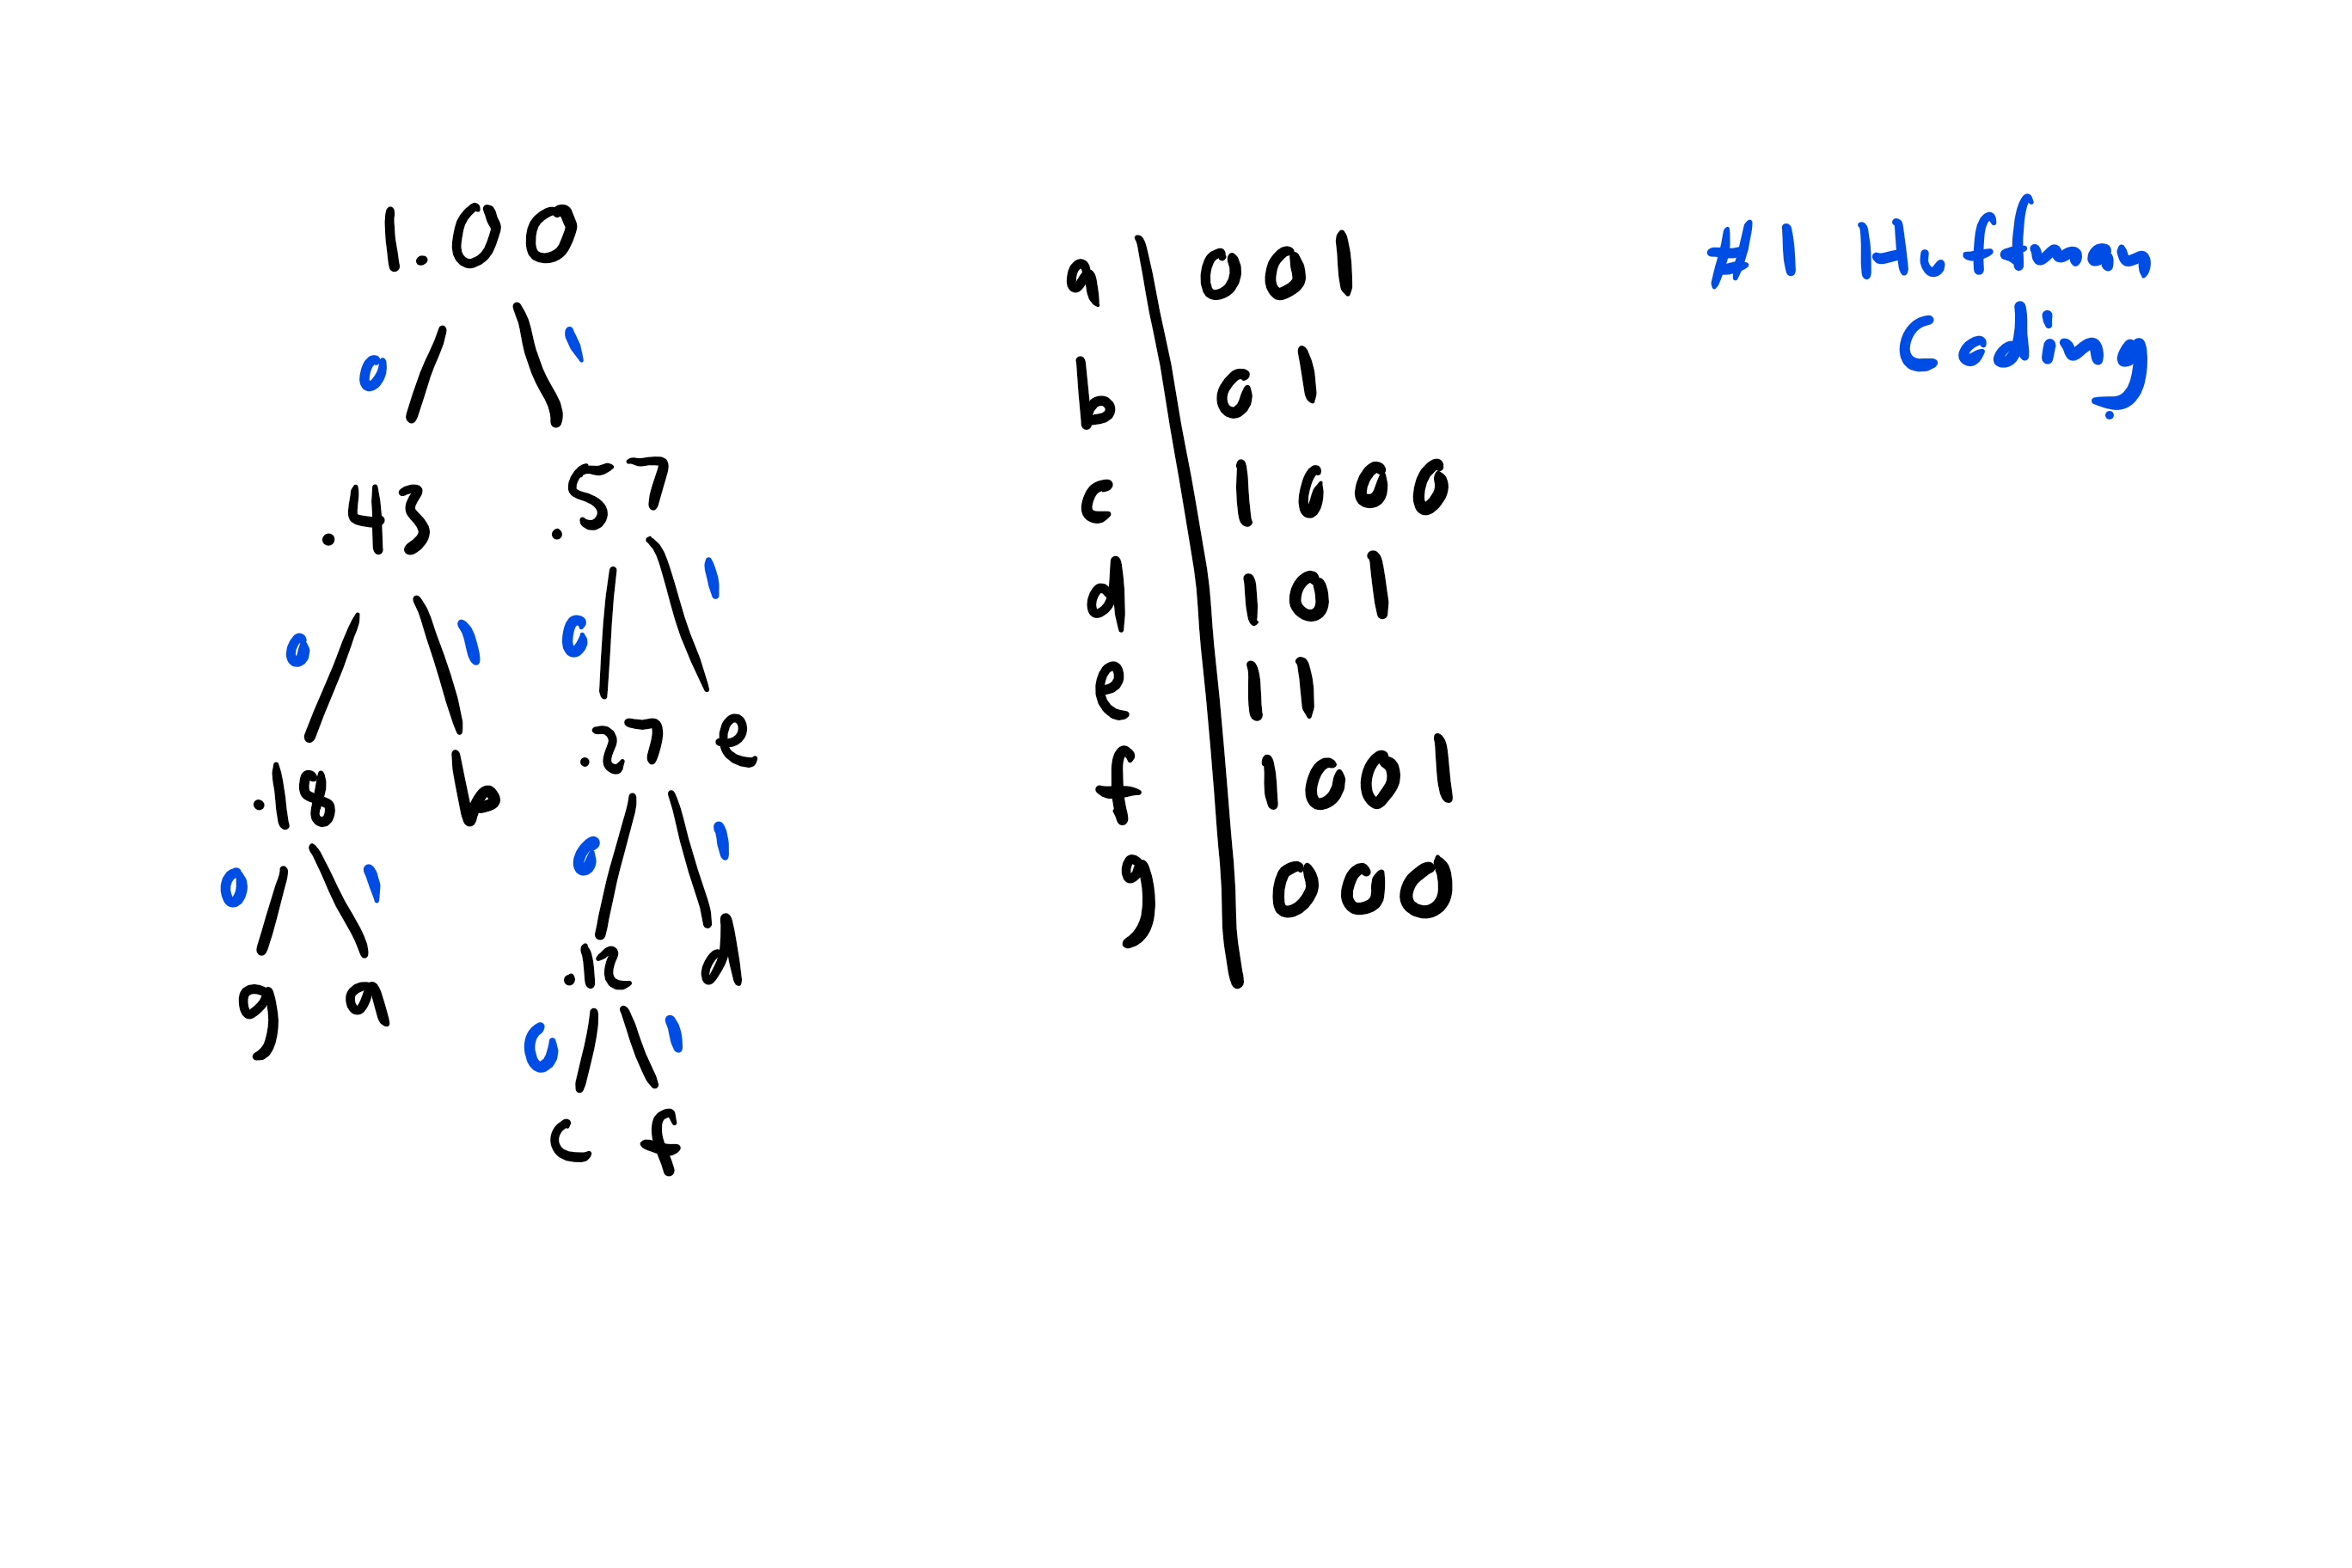 1.00
0 1
.43 .57
0 1 0 1
.18 b .27 e
0 1 0 1
g a .12 d
0 1
c f
a 001
b 01
c 1000
d 101
e 11
f 1001
g 000
#1 Huffman
Coding